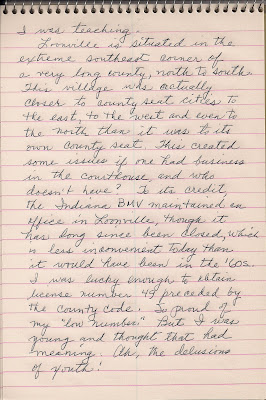 I was teaching.
Loonville is situated in the
extreme southeast corner of
a very long county, north to south.
This village was actually
closer to county seat cities to
the east, to the west and even to
the north than it was to its
own county seat. This created
some issues if one had business
in the courthouse, and who
doesn't have? To its credit,
the Indiana BMV maintained an
office in Loonville, though it
has long since been closed, which
is less inconvenient today than
it would have been in the '60s.
I was lucky enough to obtain
license number 49 preceded by
the county code. So proud of
my "low number." But I was
young and thought that had
meaning. Ah, the delusions
of youth!